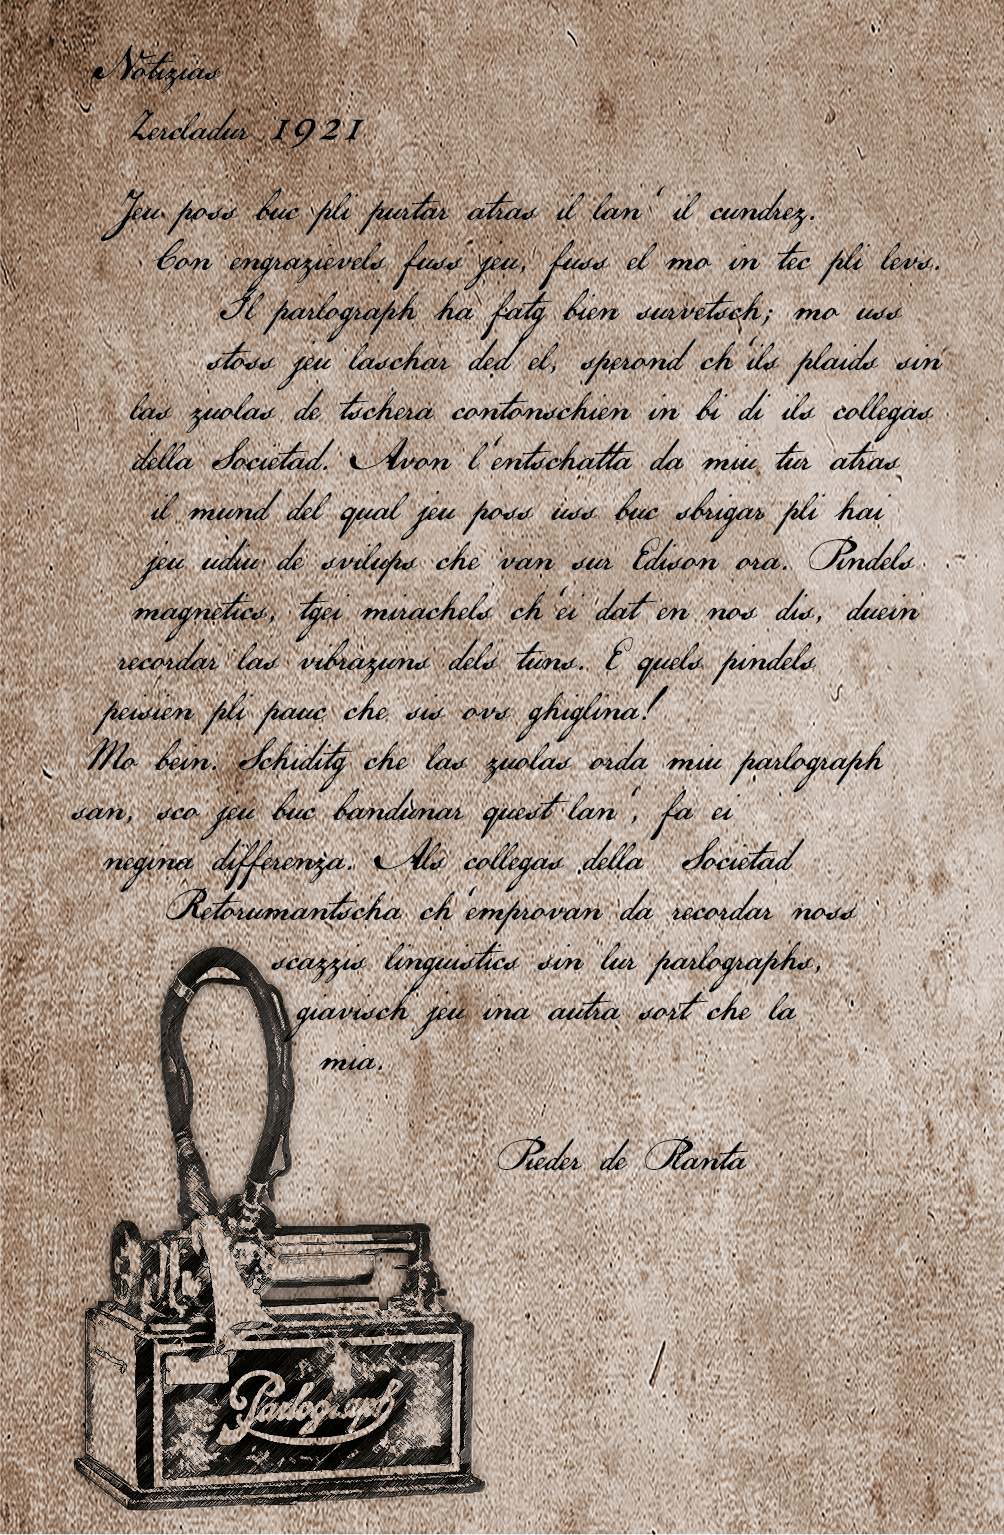 Notizias
Zercladur 1921
Jeu poss buc pli purtar atras il lan' il cundrez.
Con engrazievels fuss jeu, fuss el mo in tec pli levs.
Il parlograph ha fatg bien survetsch; mo uss
stoss jeu laschar ded el, sperond ch'ils plaids sin
las zuolas de tschera contonschien in bi di ils collegas
della Societad. Avon l'entschatta da miu tur atras
il mund del qual jeu poss uss buc sbrigar pli hai
jeu udiu de svilups che van sur Edison ora. Pindels
magnetics, tgei mirachels ch'ei dat en nos dis, duein
recordar las vibraziuns dels tuns. E quels pindels
peisien pli pauc che sis ovs ghiglina!
Mo bein. Schiditg che las zuolas orda miu parlograph
san, sco jeu buc bandunar quest lan', fa ei
negina differenza. Als collegas della Societad
Retorumantscha ch'emprovan da recordar noss
scazzis linguistics sin lur parlographs,
giavisch jeu ina autra sort che la
mia.
Pieder de Planta
Parlograph